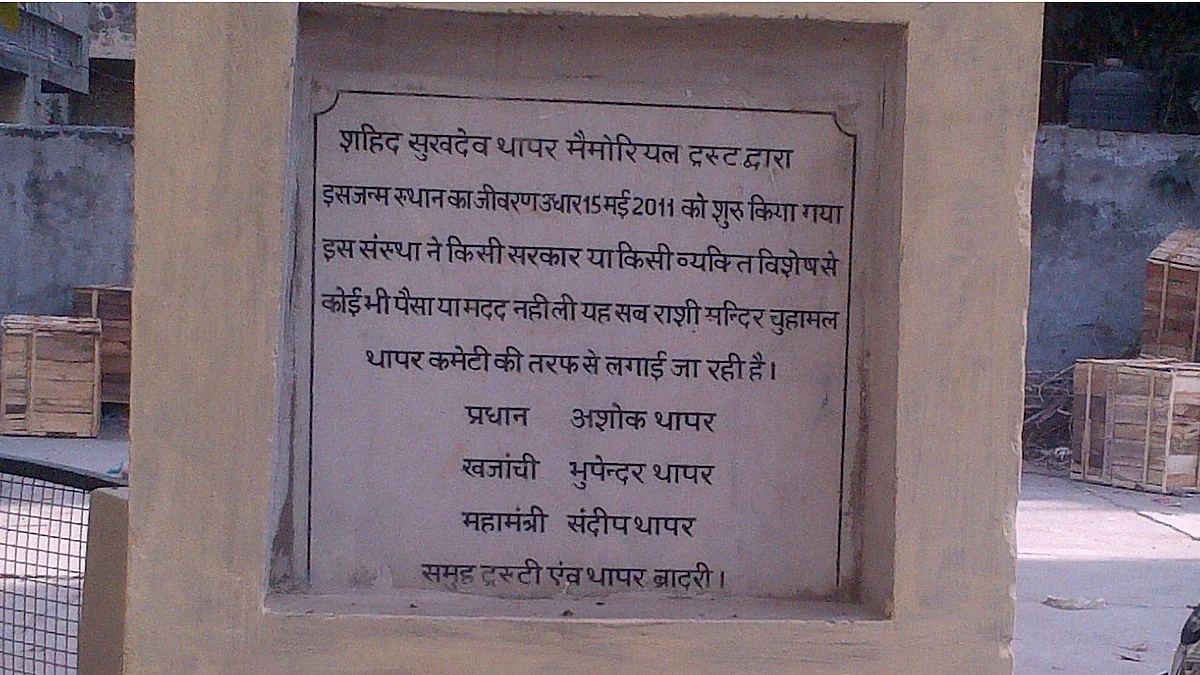 शहिद सुखदेव थापर मैमोरियल ट्रस्ट द्वारा
इस जन्म स्थान का जीवरण उधार 15 मई 2011 को शुरु किया गया
इस संस्था ने किसी सरकार या किसी व्यक्ति विशेष से
कोई भी पैसा या मदद नही ली यह सब राशी मन्दिर चुहामल
थापर कमेटी की तरफ से लगाई जा रही है।
प्रधान अशोक थापर
खजांची भुपेन्दर थापर
महामंत्री संदीप थापर
समुह ट्रस्टी एंव थापर ब्रादरी।